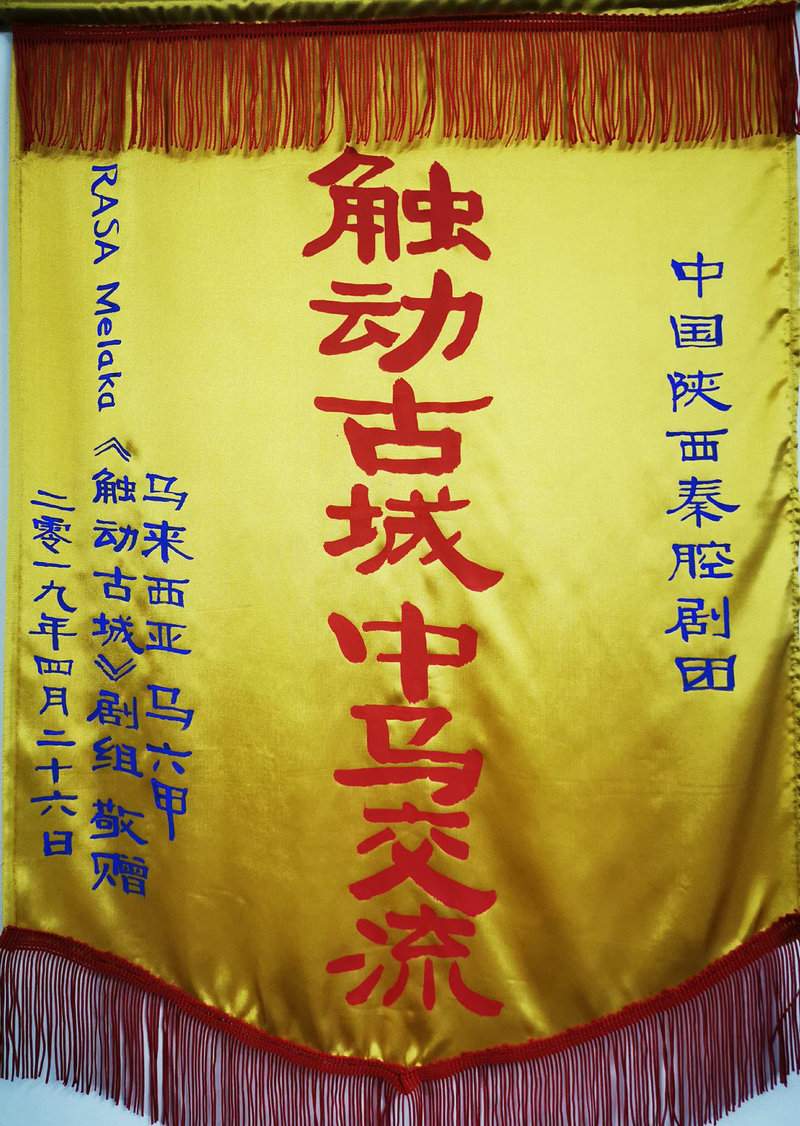 中国陕西秦腔剧团
触动古城 中马交流
马来西亚 马六甲
RASA Melaka《触动古城》剧组 敬赠
二零一九年四月二十六日